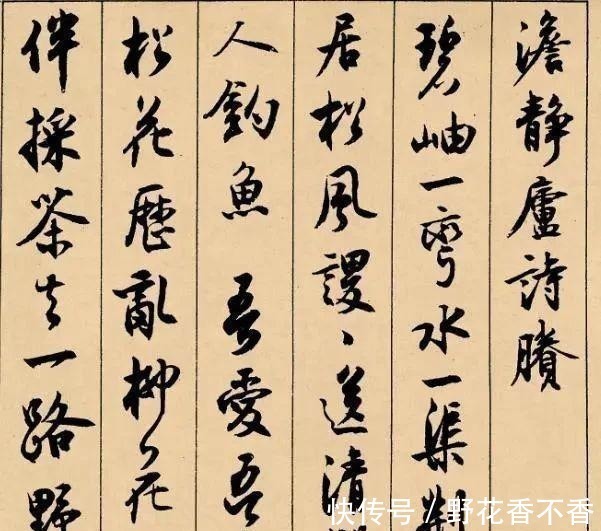 澹静廬詩賸
碧岫一彎水一渠
居松風謖〻送清
人釣魚 吾愛吾
松花歷亂柳花
伴採茶去一路野
快传号/野花香不香